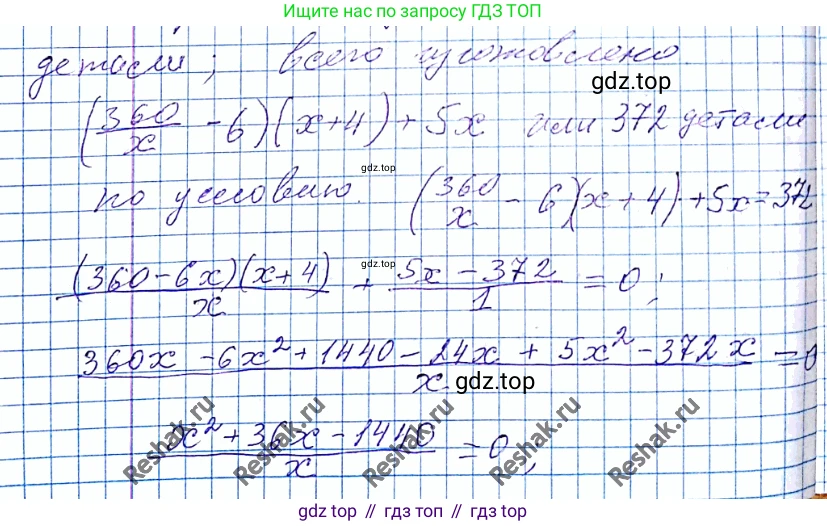 Ищите нас по запросу ГДЗ ТОП
детали; всего изготовлено
gdz.top
(360/x - 6)(x+4) + 5x или 372 детали
gdz.top
по условию. (360/x - 6)(x+4) + 5x = 372
gdz.top
(360-6x)(x+4)/x + 5x-372/1 = 0;
360x - 6x² + 1440 - 24x + 5x² - 372x / x = 0
gdz.top
x² + 36x - 1440 / x = 0;
Reshak.ru Reshak.ru Reshak.ru Reshak.ru Reshak.ru
gdz.top // гдз топ // гдз.top